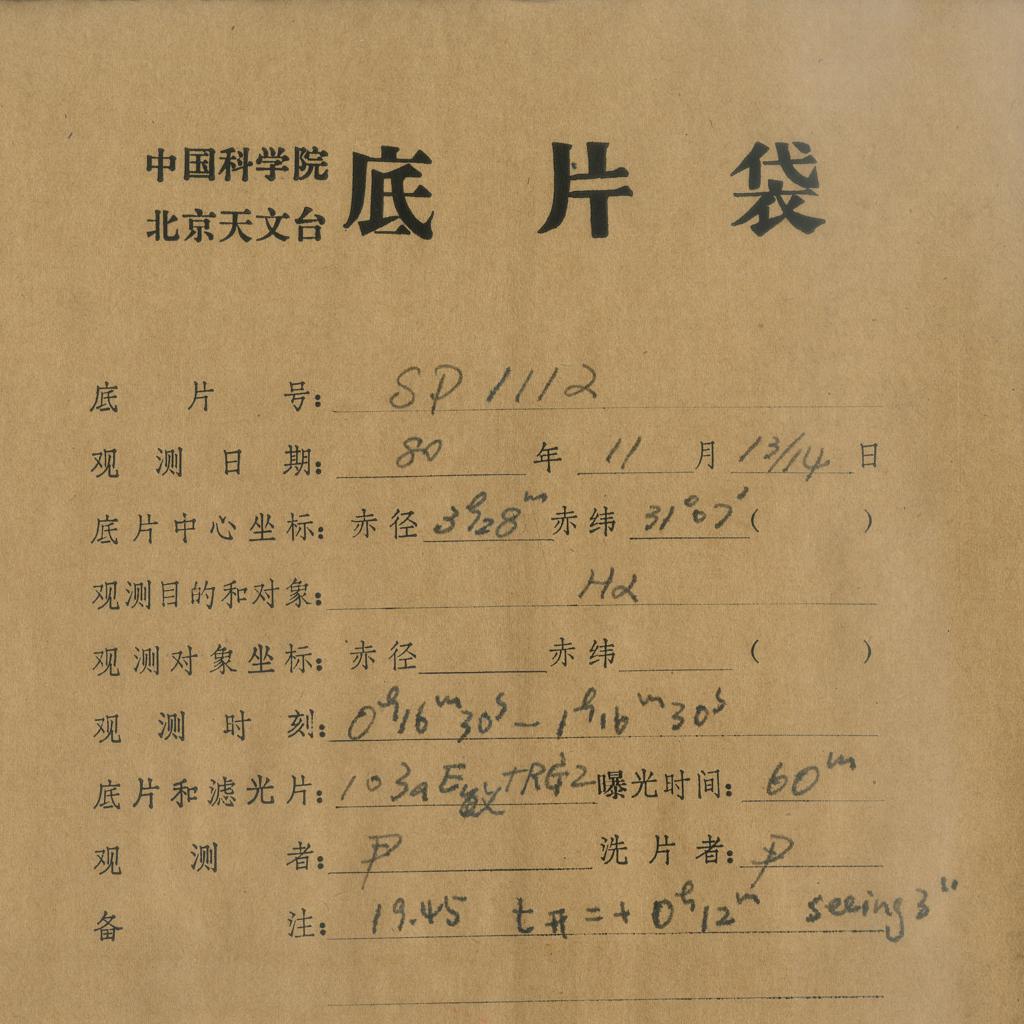 中国科学院
北京天文台
底片袋
底片号: SP 1112
观测日期: 80 年 11 月 13/14 日
底片中心坐标: 赤径 3h28m 赤纬 31°07′ ( )
观测目的和对象: Hα
观测对象坐标: 赤径 赤纬 ( )
观测时刻: 0h16m30s — 1h16m30s
底片和滤光片: 103aE +RG2 曝光时间: 60m
观测者: 尹 洗片者: 尹
备注: 19.45 t开=+0h12m seeing3″